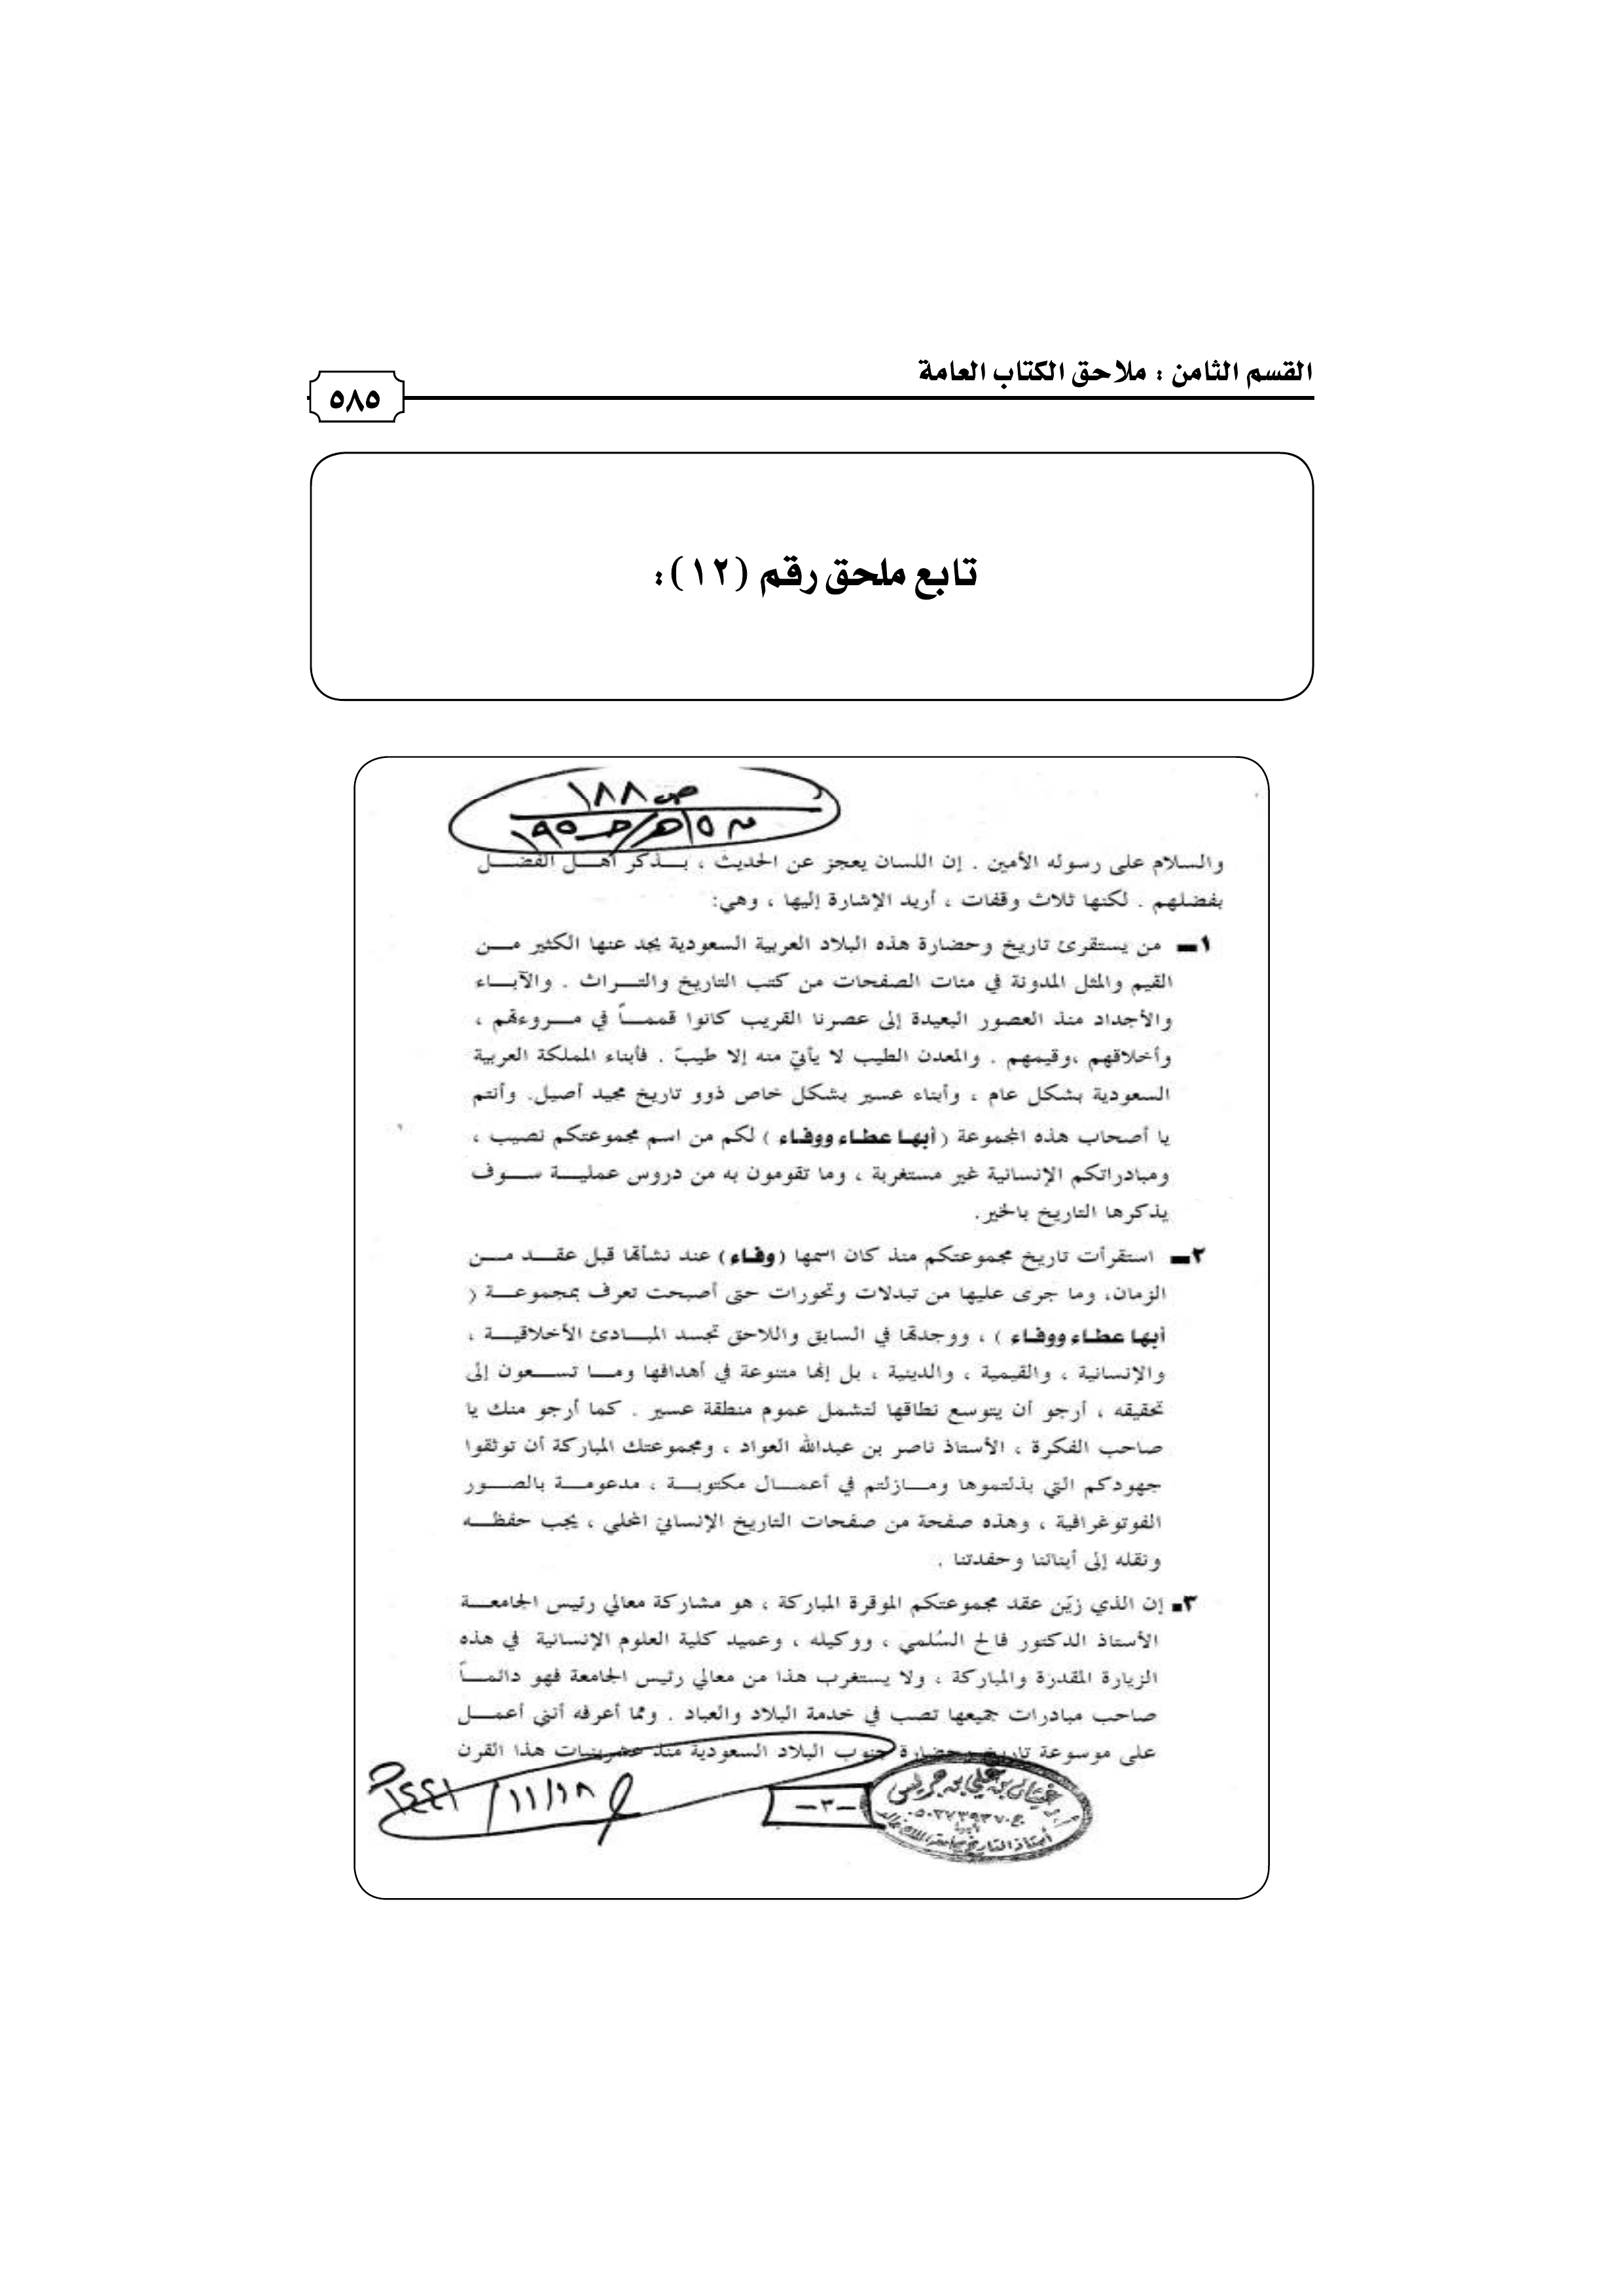 القسم الثامن : ملاحق الكتاب العامة
٥٨٥
تابع ملحق رقم (١٢):
ص ١٨٨
والسلام على رسوله الأمين . إن اللسان يعجز عن الحديث ، بـــذكر أهـــل الفضـــل
بفضلهم . لكنها ثلاث وقفات ، أريد الإشارة إليها ، وهي:
١ــ من يستقرئ تاريخ وحضارة هذه البلاد العربية السعودية يجد عنها الكثير مـــن
القيم والمثل المدونة في مئات الصفحات من كتب التاريخ والتـــراث . والآبـــاء
والأجداد منذ العصور البعيدة إلى عصرنا القريب كانوا قممـــاً في مـــروءتهم ،
وأخلاقهم ،وقيمهم . والمعدن الطيب لا يأتي منه إلا طيبٌ . فأبناء المملكة العربية
السعودية بشكل عام ، وأبناء عسير بشكل خاص ذوو تاريخ مجيد أصيل. وأنتم
يا أصحاب هذه المجموعة ( أبها عطاء ووفاء ) لكم من اسم مجموعتكم نصيب ،
ومبادراتكم الإنسانية غير مستغربة ، وما تقومون به من دروس عمليـــة ســـوف
يذكرها التاريخ بالخير.
٢ــ استقرأت تاريخ مجموعتكم منذ كان اسمها ( وفاء ) عند نشأتها قبل عقـــد مـــن
الزمان، وما جرى عليها من تبدلات وتحورات حتى أصبحت تعرف بمجموعـــة (
أبها عطاء ووفاء ) ، ووجدتها في السابق واللاحق تجسد المبـــادئ الأخلاقيـــة ،
والإنسانية ، والقيمية ، والدينية ، بل إنها متنوعة في أهدافها ومـــا تســـعون إلى
تحقيقه ، أرجو أن يتوسع نطاقها لتشمل عموم منطقة عسير . كما أرجو منك يا
صاحب الفكرة ، الأستاذ ناصر بن عبدالله العواد ، ومجموعتك المباركة أن توثقوا
جهودكم التي بذلتموها ومـــازلتم في أعمـــال مكتوبـــة ، مدعومـــة بالصـــور
الفوتوغرافية ، وهذه صفحة من صفحات التاريخ الإنساني المحلي ، يجب حفظـــه
ونقله إلى أبنائنا وحفدتنا .
٣ـ إن الذي زيّن عقد مجموعتكم الموقرة المباركة ، هو مشاركة معالي رئيس الجامعـــة
الأستاذ الدكتور فالح السُلمي ، ووكيله ، وعميد كلية العلوم الإنسانية في هذه
الزيارة المقدرة والمباركة ، ولا يستغرب هذا من معالي رئيس الجامعة فهو دائمـــاً
صاحب مبادرات جميعها تصب في خدمة البلاد والعباد . ومما أعرفه أنني أعمـــل
على موسوعة تاريخ وحضارة جنوب البلاد السعودية منذ عشرينيات هذا القرن
غيثان بن علي بن جريس
أستاذ التاريخ بجامعة الملك خالد
–٣–
١٨/١١/١٤٤١هـ